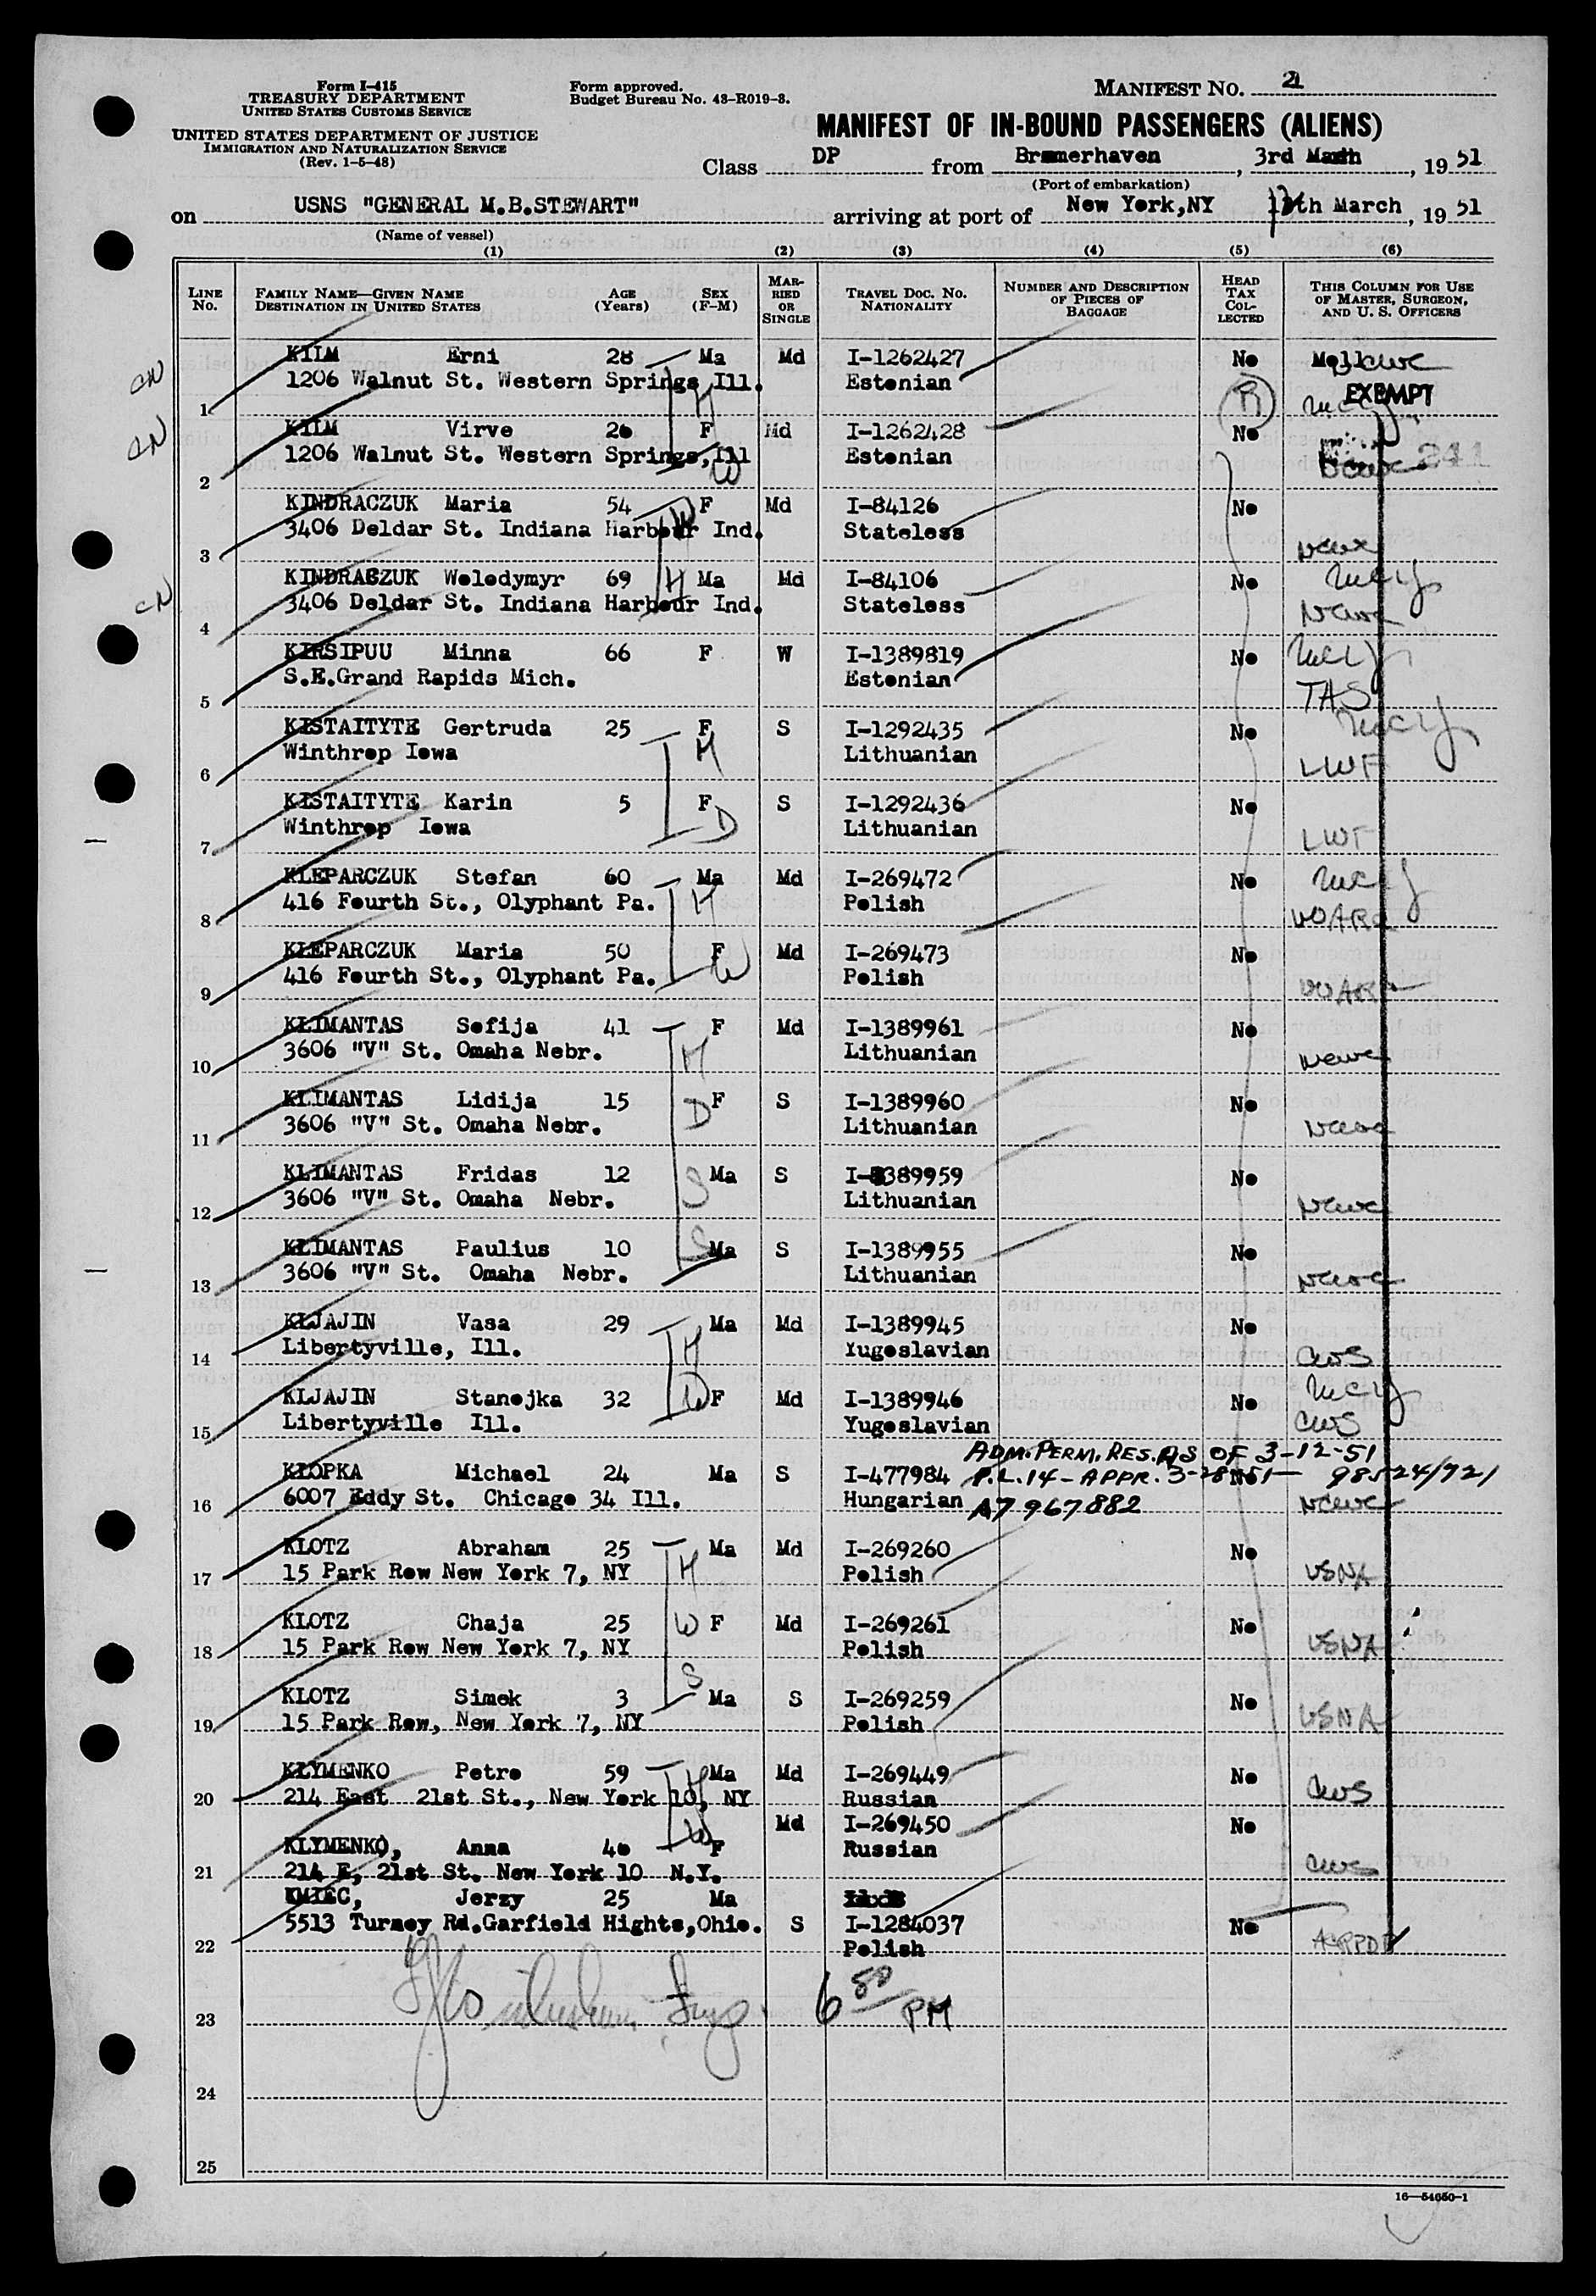 Form I-415
TREASURY DEPARTMENT
UNITED STATES CUSTOMS SERVICE
UNITED STATES DEPARTMENT OF JUSTICE
IMMIGRATION AND NATURALIZATION SERVICE
(Rev. 1-5-48)
Form approved.
Budget Bureau No. 43-R019-3.
MANIFEST NO. 21
MANIFEST OF IN-BOUND PASSENGERS (ALIENS)
Class DP from Bremerhaven, 3rd March, 1951
(Port of embarkation)
on USNS "GENERAL M.B.STEWART" arriving at port of New York,NY 12th March, 1951
(Name of vessel)
(1) (2) (3) (4) (5) (6)
LINE No. FAMILY NAME—GIVEN NAME DESTINATION IN UNITED STATES AGE (Years) SEX (F-M) MARRIED OR SINGLE TRAVEL DOC. NO. NATIONALITY NUMBER AND DESCRIPTION OF PIECES OF BAGGAGE HEAD TAX COLLECTED THIS COLUMN FOR USE OF MASTER, SURGEON, AND U. S. OFFICERS
KILM Erni 28 Ma Md I-1262427 No
1 1206 Walnut St. Western Springs Ill. Estonian EXEMPT
KILM Virve 26 F Md I-1262428 No
2 1206 Walnut St. Western Springs,Ill Estonian 241
KINDRACZUK Maria 54 F Md I-84126 No
3 3406 Deldar St. Indiana Harbour Ind. Stateless
KINDRACZUK Wolodymyr 69 H Ma Md I-84106 No
4 3406 Deldar St. Indiana Harbour Ind. Stateless NCWC
KIRSIPUU Minna 66 F W I-1389819 No
5 S.E.Grand Rapids Mich. Estonian TAS
KISTAITYTE Gertruda 25 F H S I-1292435 No
6 Winthrop Iowa Lithuanian LWF
KISTAITYTE Karin 5 F D S I-1292436 No
7 Winthrop Iowa Lithuanian LWF
KLEPARCZUK Stefan 60 Ma H Md I-269472 No
8 416 Fourth St., Olyphant Pa. Polish UUARC
KLEPARCZUK Maria 50 F W Md I-269473 No
9 416 Fourth St., Olyphant Pa. Polish UUARC
KLIMANTAS Sofija 41 F H Md I-1389961 No
10 3606 "V" St. Omaha Nebr. Lithuanian NCWC
KLIMANTAS Lidija 15 D F S I-1389960 No
11 3606 "V" St. Omaha Nebr. Lithuanian NCWC
KLIMANTAS Fridas 12 S Ma S I-1389959 No
12 3606 "V" St. Omaha Nebr. Lithuanian NCWC
KLIMANTAS Paulius 10 S Ma S I-1389955 No
13 3606 "V" St. Omaha Nebr. Lithuanian NCWC
KLJAJIN Vasa 29 H Ma Md I-1389945 No
14 Libertyville, Ill. Yugoslavian CWS
KLJAJIN Stanojka 32 W F Md I-1389946 No
15 Libertyville Ill. Yugoslavian CWS
ADM. PERM. RES. AS OF 3-12-51
KLOPKA Michael 24 Ma S I-477984 P.L. 14 - APPR. 3-28-51 — No 98524/721
16 6007 Eddy St. Chicago 34 Ill. Hungarian A7 967882 NCWC
KLOTZ Abraham 25 H Ma Md I-269260 No
17 15 Park Row New York 7, NY Polish USNA
KLOTZ Chaja 25 W F Md I-269261 No
18 15 Park Row New York 7, NY Polish USNA
KLOTZ Simek 3 S Ma S I-269259 No
19 15 Park Row, New York 7, NY Polish USNA
KLYMENKO Petro 59 H Ma Md I-269449 No
20 214 East 21st St., New York 10, NY Russian CWS
Md I-269450 No
KLYMENKO, Anna 40 W F Russian
21 214 E, 21st St. New York 10 N.Y. CWS
KMIEC, Jerzy 25 Ma
5513 Turney Rd.Garfield Hights,Ohio. S I-1284037 No
22 Polish
23 6 50 PM
24
25
16—54650-1